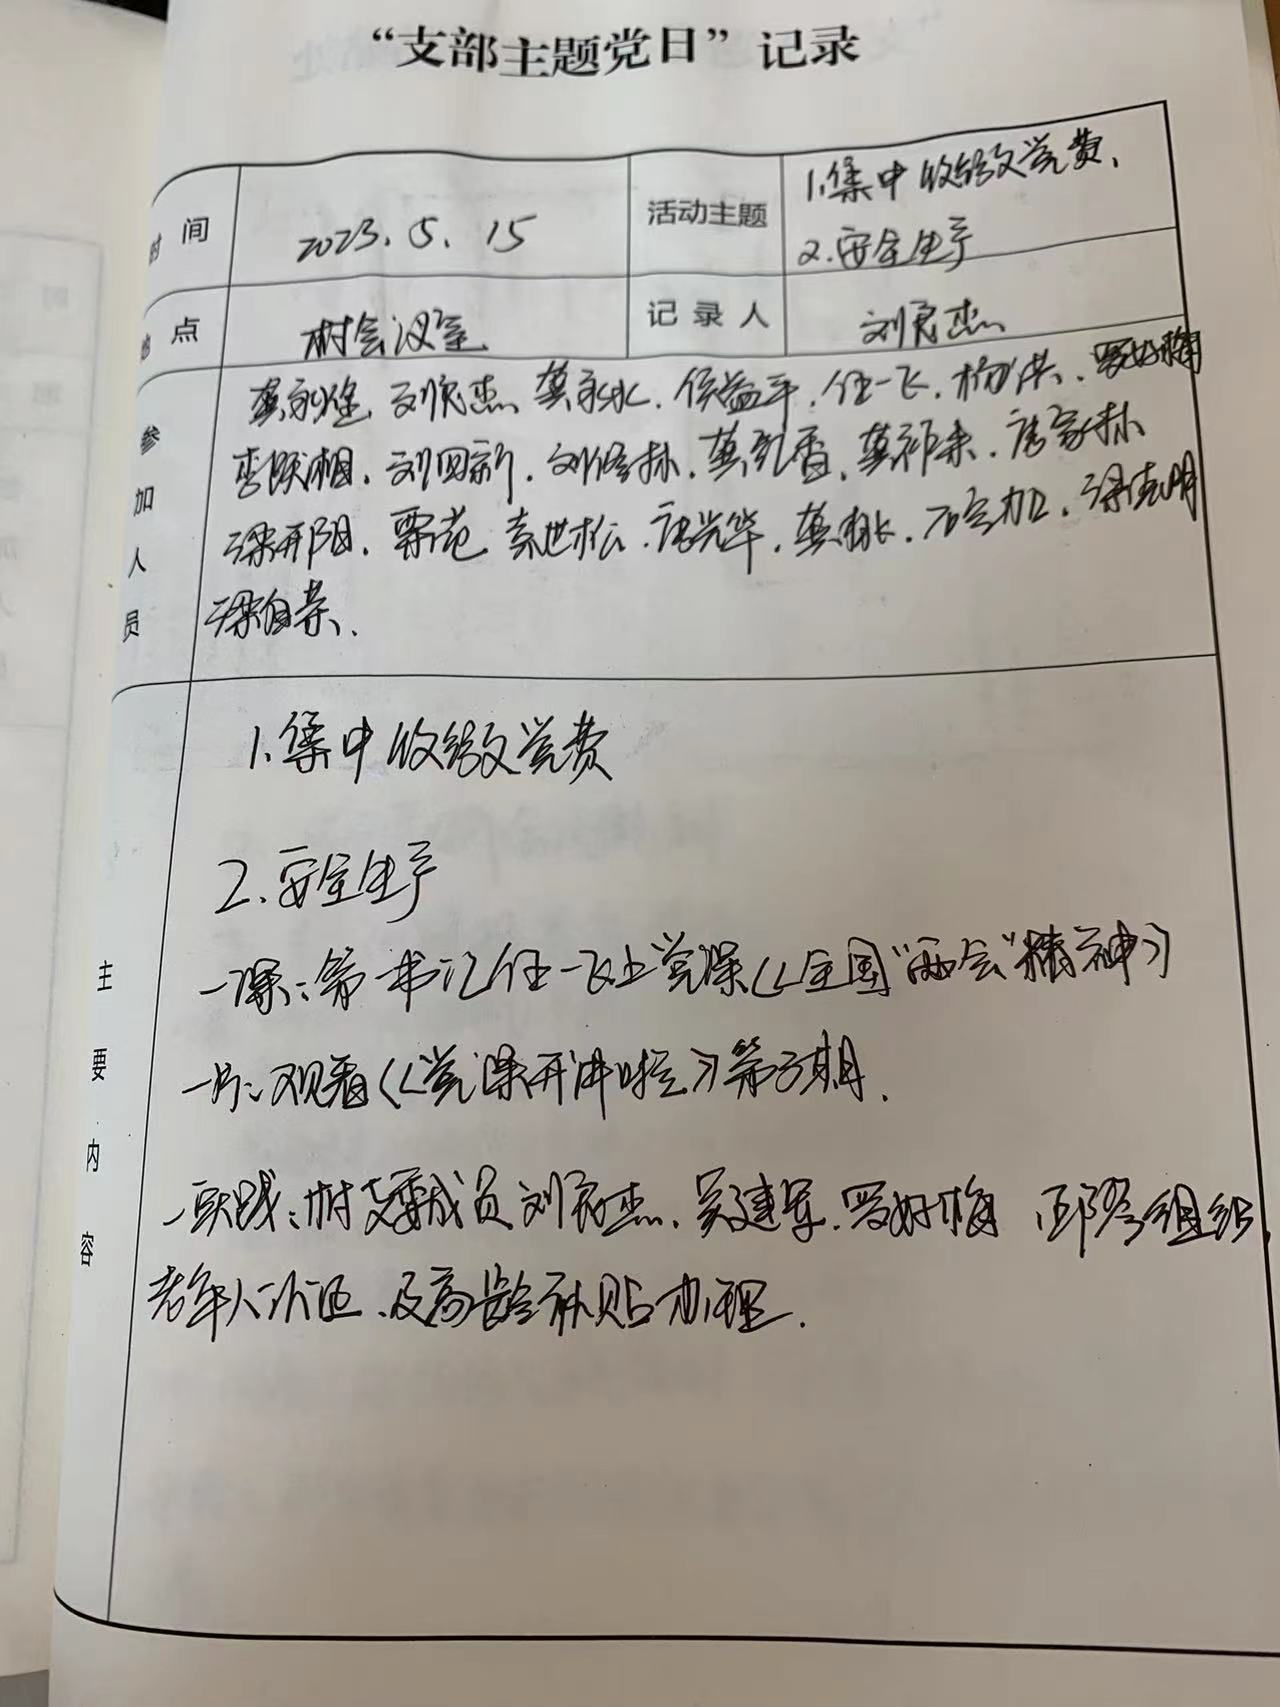 “支部主题党日”记录
时间 2023.5.15 活动主题 1.集中收缴党费、
2.安全生产
地点 村会议室 记录人 刘良杰
参加人员
刘良杰 龚永水. 侯益平. 任一飞. 杨洪.
李跃相. 刘四新. 刘修林. 龚孔香. 龚祁来. 唐家林
梁开阳. 覃范 秦世松. 唐光华. 石宗加. 梁克明
梁自荣.
主要内容
1.集中收缴党费
2.安全生产
一课:第一书记任一飞上党课《全国“两会”精神》
一片:观看《党课开讲啦》第3期.
一实践:村支委成员刘良杰.吴建军.罗好梅 到各组组织
老年人认证.及高龄补贴办理.